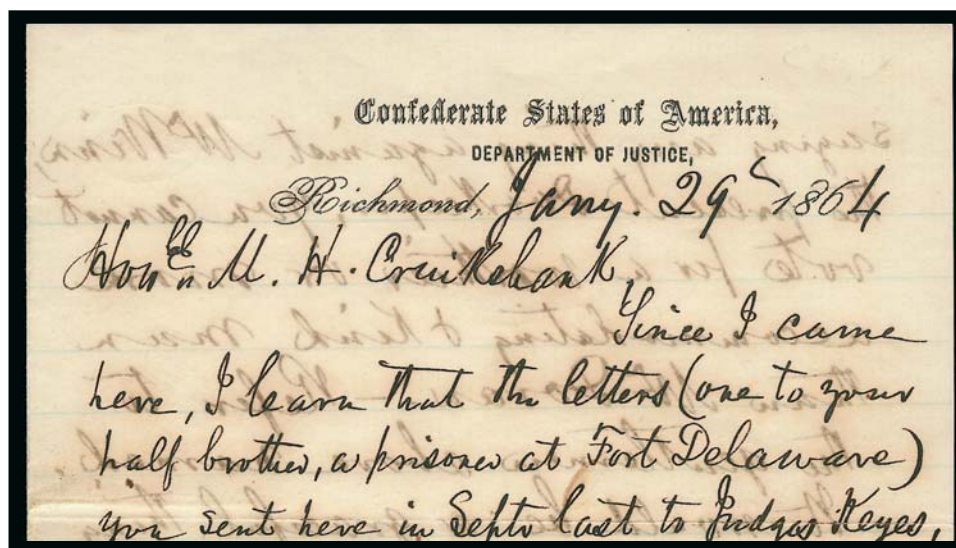 Confederate States of America,
DEPARTMENT OF JUSTICE,
Richmond, Jany. 29 1864
Honᵇˡᵉ M. H. Cruikshank,
Since I came
here, I learn that the letters (one to your
half brother, a prisoner at Fort Delaware)
you sent here in Septr last to Judge Keyes,